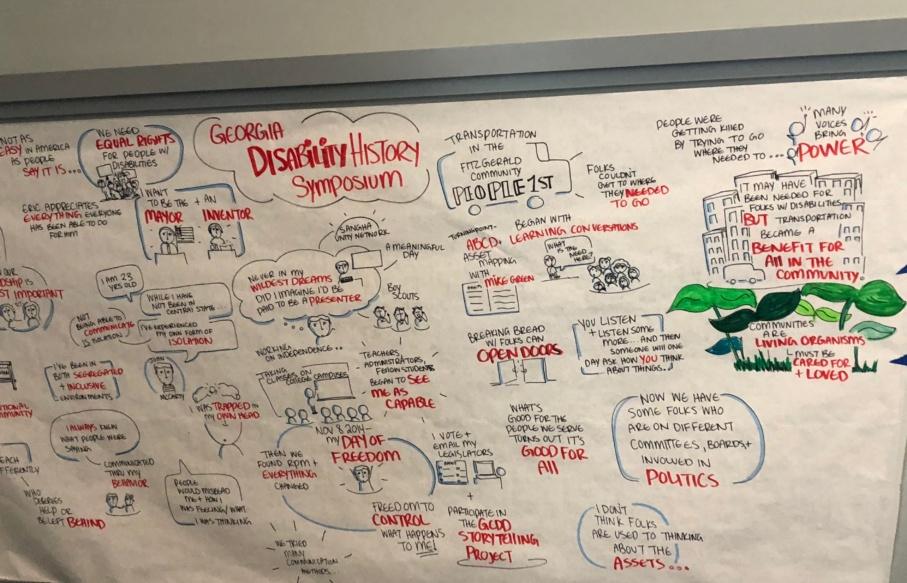 NOT AS
EASY IN AMERICA
AS PEOPLE
SAY IT IS...
WE NEED
EQUAL RIGHTS
FOR PEOPLE W/
DISABILITIES
ERIC APPRECIATES
EVERYTHING EVERYONE
HAS BEEN ABLE TO DO
FOR HIM
I WANT
TO BE THE + AN
MAYOR INVENTOR
GEORGIA
DISABILITY HISTORY
SYMPOSIUM
OUR
IS
IMPORTANT
I AM 23
YRS OLD
WHILE I HAVE
NOT BEEN IN
CENTRAL STATE
NOT
BEING ABLE TO
COMMUNICATE
IS ISOLATION
I'VE EXPERIENCED
MY OWN FORM OF
ISOLATION
I'VE BEEN IN
BOTH SEGREGATED
+ INCLUSIVE
ENVIRONMENTS
McCARTY
I WAS TRAPPED IN
MY OWN HEAD
I ALWAYS KNEW
WHAT PEOPLE WERE
SAYING
COMMUNICATED
THRU MY
BEHAVIOR
WHO
DESERVES
HELP OR
BE LEFT BEHIND
PEOPLE
WOULD MISREAD
ME + HOW I
WAS FEELING/WHAT
I WAS THINKING
WE TRIED
MANY
COMMUNICATION
METHODS...
SANGHA
UNITY NETWORK
A MEANINGFUL
DAY
NEVER IN MY
WILDEST DREAMS
DID I IMAGINE I'D BE
PAID TO BE A PRESENTER
BOY
SCOUTS
WORKING
ON INDEPENDENCE..
TAKING
CLASSES ON
COLLEGE CAMPUSES
TEACHERS,
ADMINISTRATORS,
FELLOW STUDENTS
BEGAN TO SEE
ME AS
CAPABLE
NOV 8 2014—
MY DAY OF
FREEDOM
THEN WE
FOUND RPM +
EVERYTHING
CHANGED
FREEDOM TO
CONTROL
WHAT HAPPENS
TO ME!
I VOTE +
EMAIL MY
LEGISLATORS
+
PARTICIPATE IN
THE GCDD
STORYTELLING
PROJECT
TRANSPORTATION
IN THE
FITZGERALD
COMMUNITY
PEOPLE 1ST
FOLKS
COULDN'T
GET TO WHERE
THEY NEEDED
TO GO
TURNING POINT-
BEGAN WITH
ABCD + LEARNING CONVERSATIONS
ASSET
MAPPING
WITH
MIKE GREEN
WHAT IS
THE
NEED
HERE?
BREAKING BREAD
W/ FOLKS CAN
OPEN DOORS
YOU LISTEN
+ LISTEN SOME
MORE... AND THEN
SOMEONE WILL ONE
DAY ASK HOW YOU THINK
ABOUT THINGS...
WHAT'S
GOOD FOR THE
PEOPLE WE SERVE
TURNS OUT IT'S
GOOD FOR
ALL
PEOPLE WERE
GETTING KILLED
BY TRYING TO GO
WHERE THEY
NEEDED TO...
MANY
VOICES
BRING
POWER
IT MAY HAVE
BEEN NEEDED FOR
FOLKS W/ DISABILITIES
BUT TRANSPORTATION
BECAME A
BENEFIT FOR
ALL IN THE
COMMUNITY
COMMUNITIES
ARE
LIVING ORGANISMS
MUST BE
CARED FOR
+ LOVED
NOW WE HAVE
SOME FOLKS WHO
ARE ON DIFFERENT
COMMITTEES, BOARDS +
INVOLVED IN
POLITICS
I DON'T
THINK FOLKS
ARE USED TO THINKING
ABOUT THE
ASSETS...